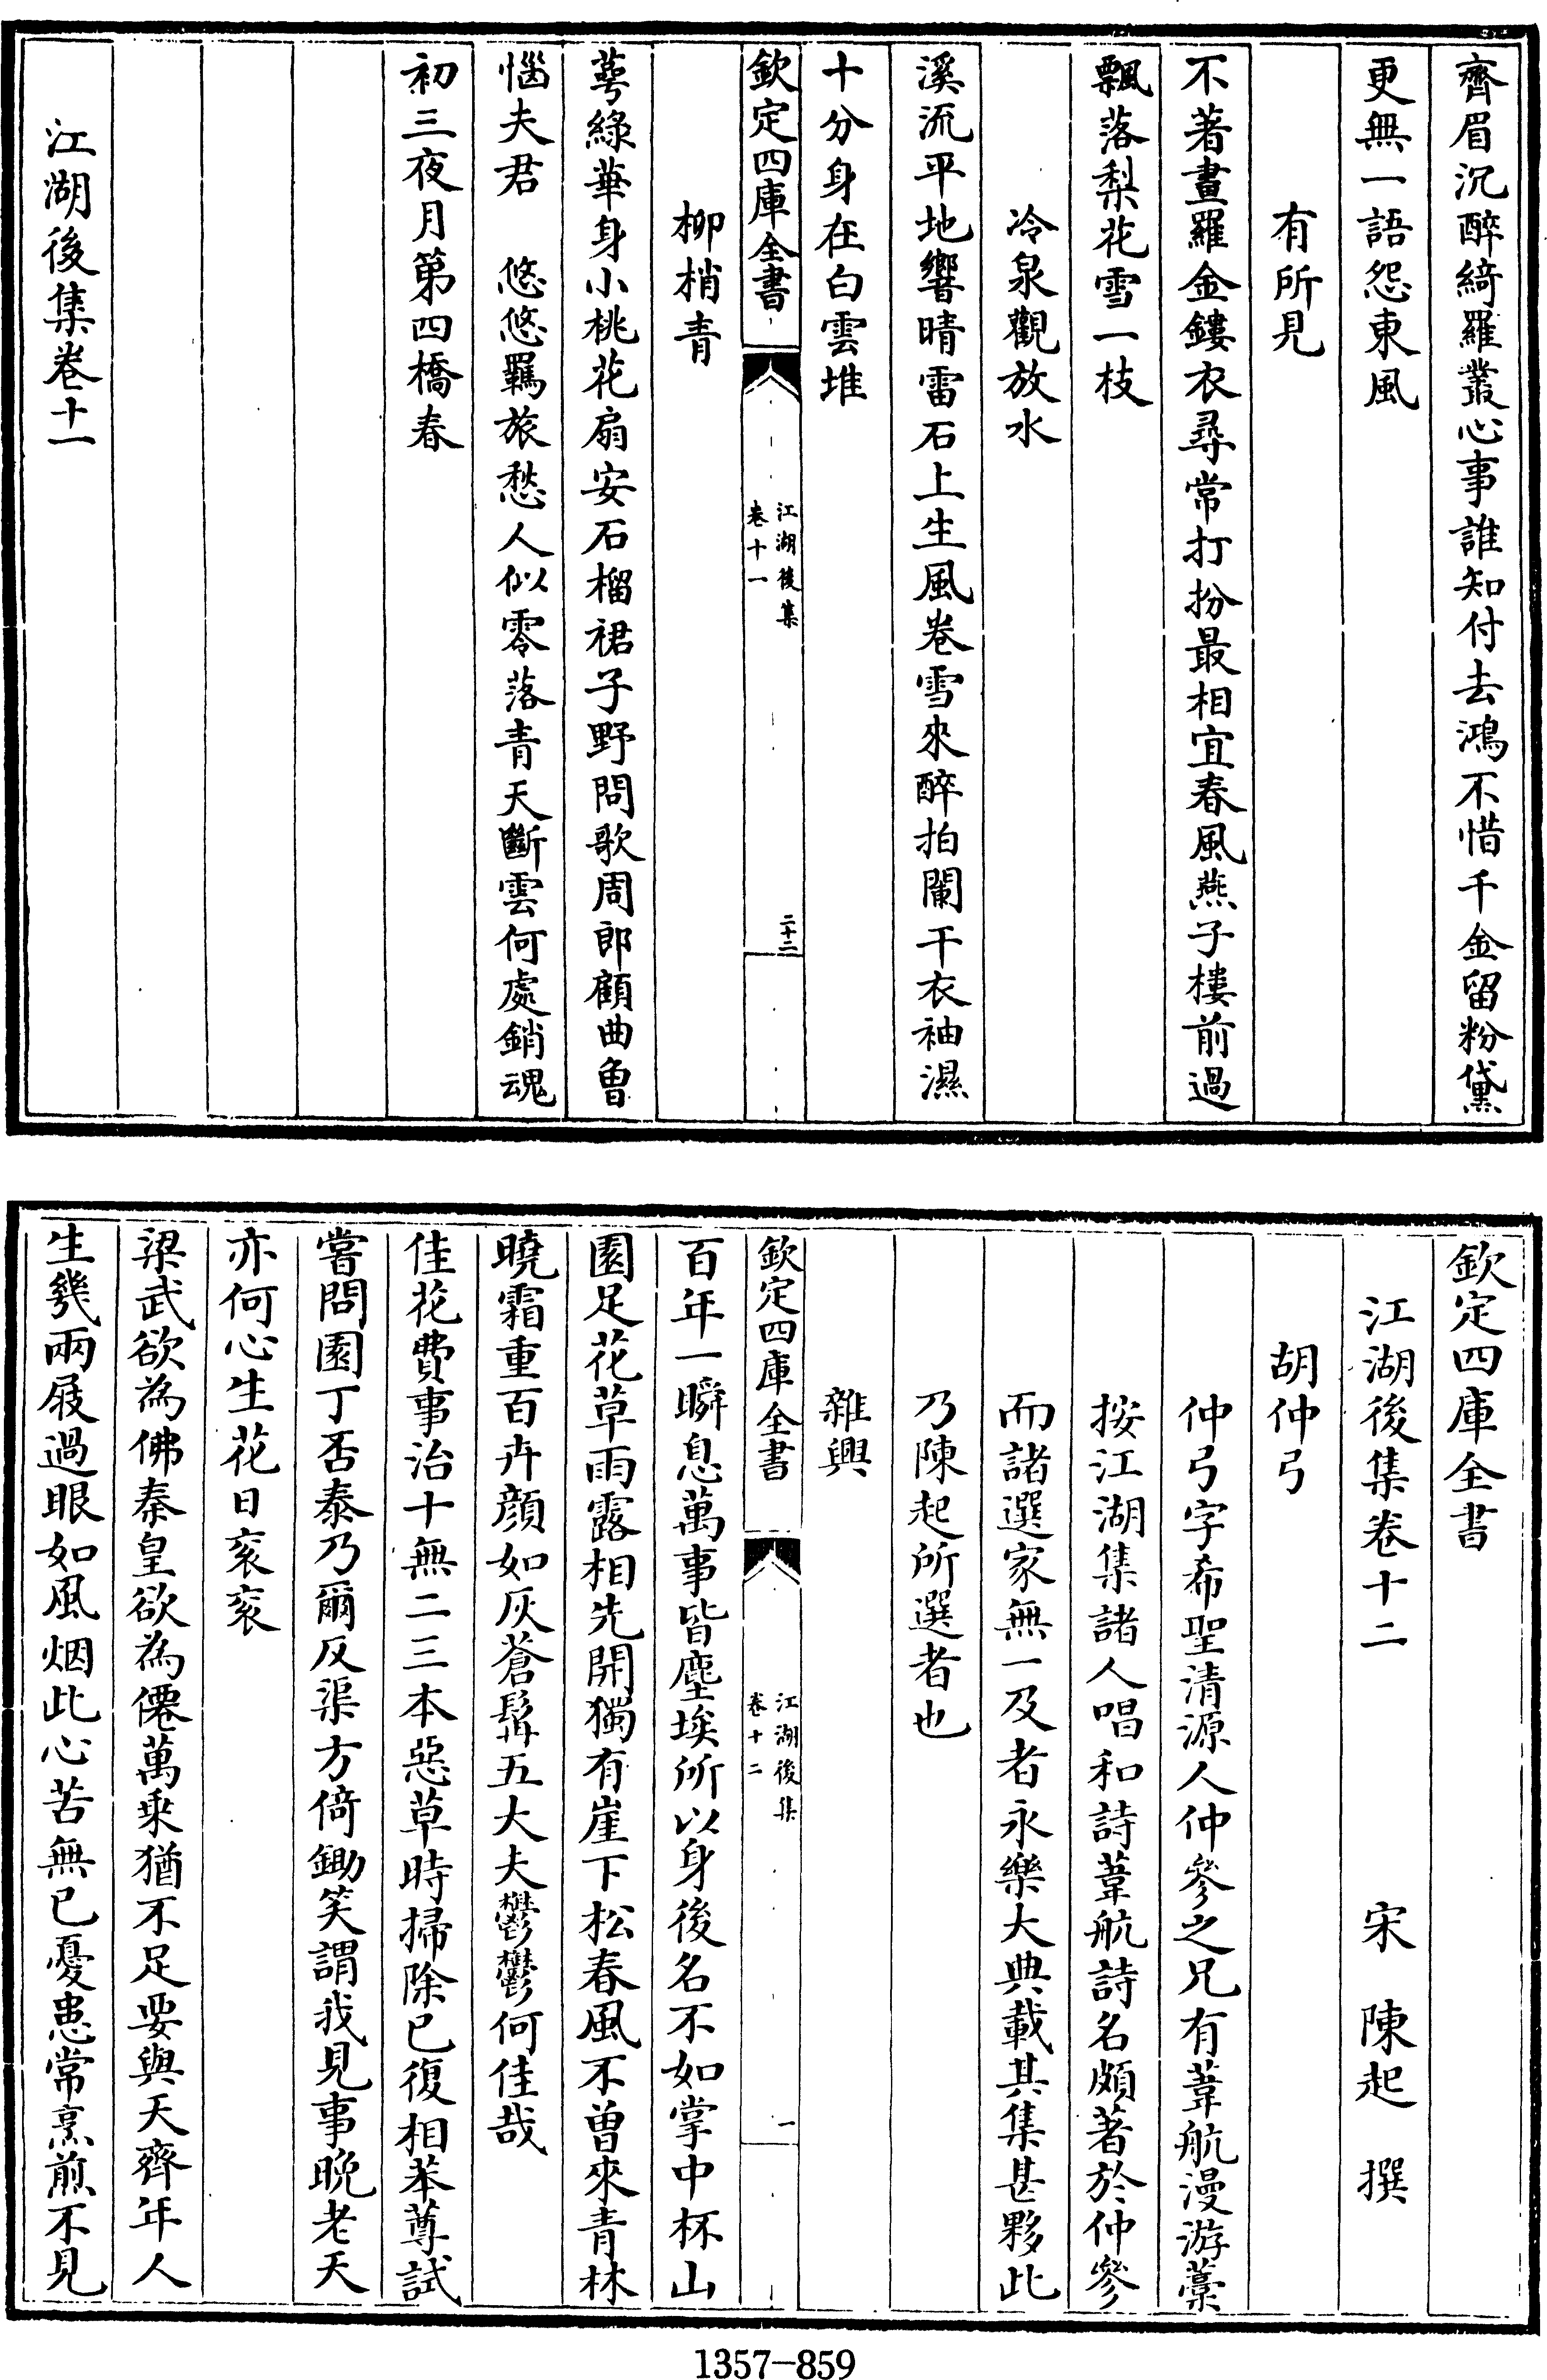 齊眉沉醉綺羅叢心事誰知付去鴻不惜千金留粉黛
更無一語怨東風
有所見
不著畫羅金鏤衣尋常打扮最相宜春風燕子樓前過
飄落梨花雪一枝
冷泉觀放水
溪流平地響晴雷石上生風卷雪來醉拍闌干衣袖濕
十分身在白雲堆
欽定四庫全書
江湖後集
卷十一
二十二
柳梢青
萼綠華身小桃花扇安石榴裙子野問歌周郎顧曲曾
惱夫君　悠悠羈旅愁人似零落青天斷雲何處銷魂
初三夜月第四橋春
江湖後集卷十一
欽定四庫全書
江湖後集卷十二　宋　陳起　撰
胡仲弓
仲弓字希聖清源人仲參之兄有葦航漫游藁
按江湖集諸人唱和詩葦航詩名頗著於仲參
而諸選家無一及者永樂大典載其集甚夥此
乃陳起所選者也
雜興
欽定四庫全書
江湖後集
卷十二
一
百年一瞬息萬事皆塵埃所以身後名不如掌中杯山
園足花草雨露相先開獨有崖下松春風不曾來青林
曉霜重百卉顔如灰蒼髯五大夫鬱鬱何佳哉
佳花費事治十無二三本惡草時掃除已復相苯䔿試
嘗問園丁否泰乃爾反渠方倚鋤笑謂我見事晚老天
亦何心生花日衮衮
梁武欲為佛秦皇欲為僊萬乘猶不足要與天齊年人
生幾兩屐過眼如風烟此心苦無已憂患常烹煎不見
1357-859